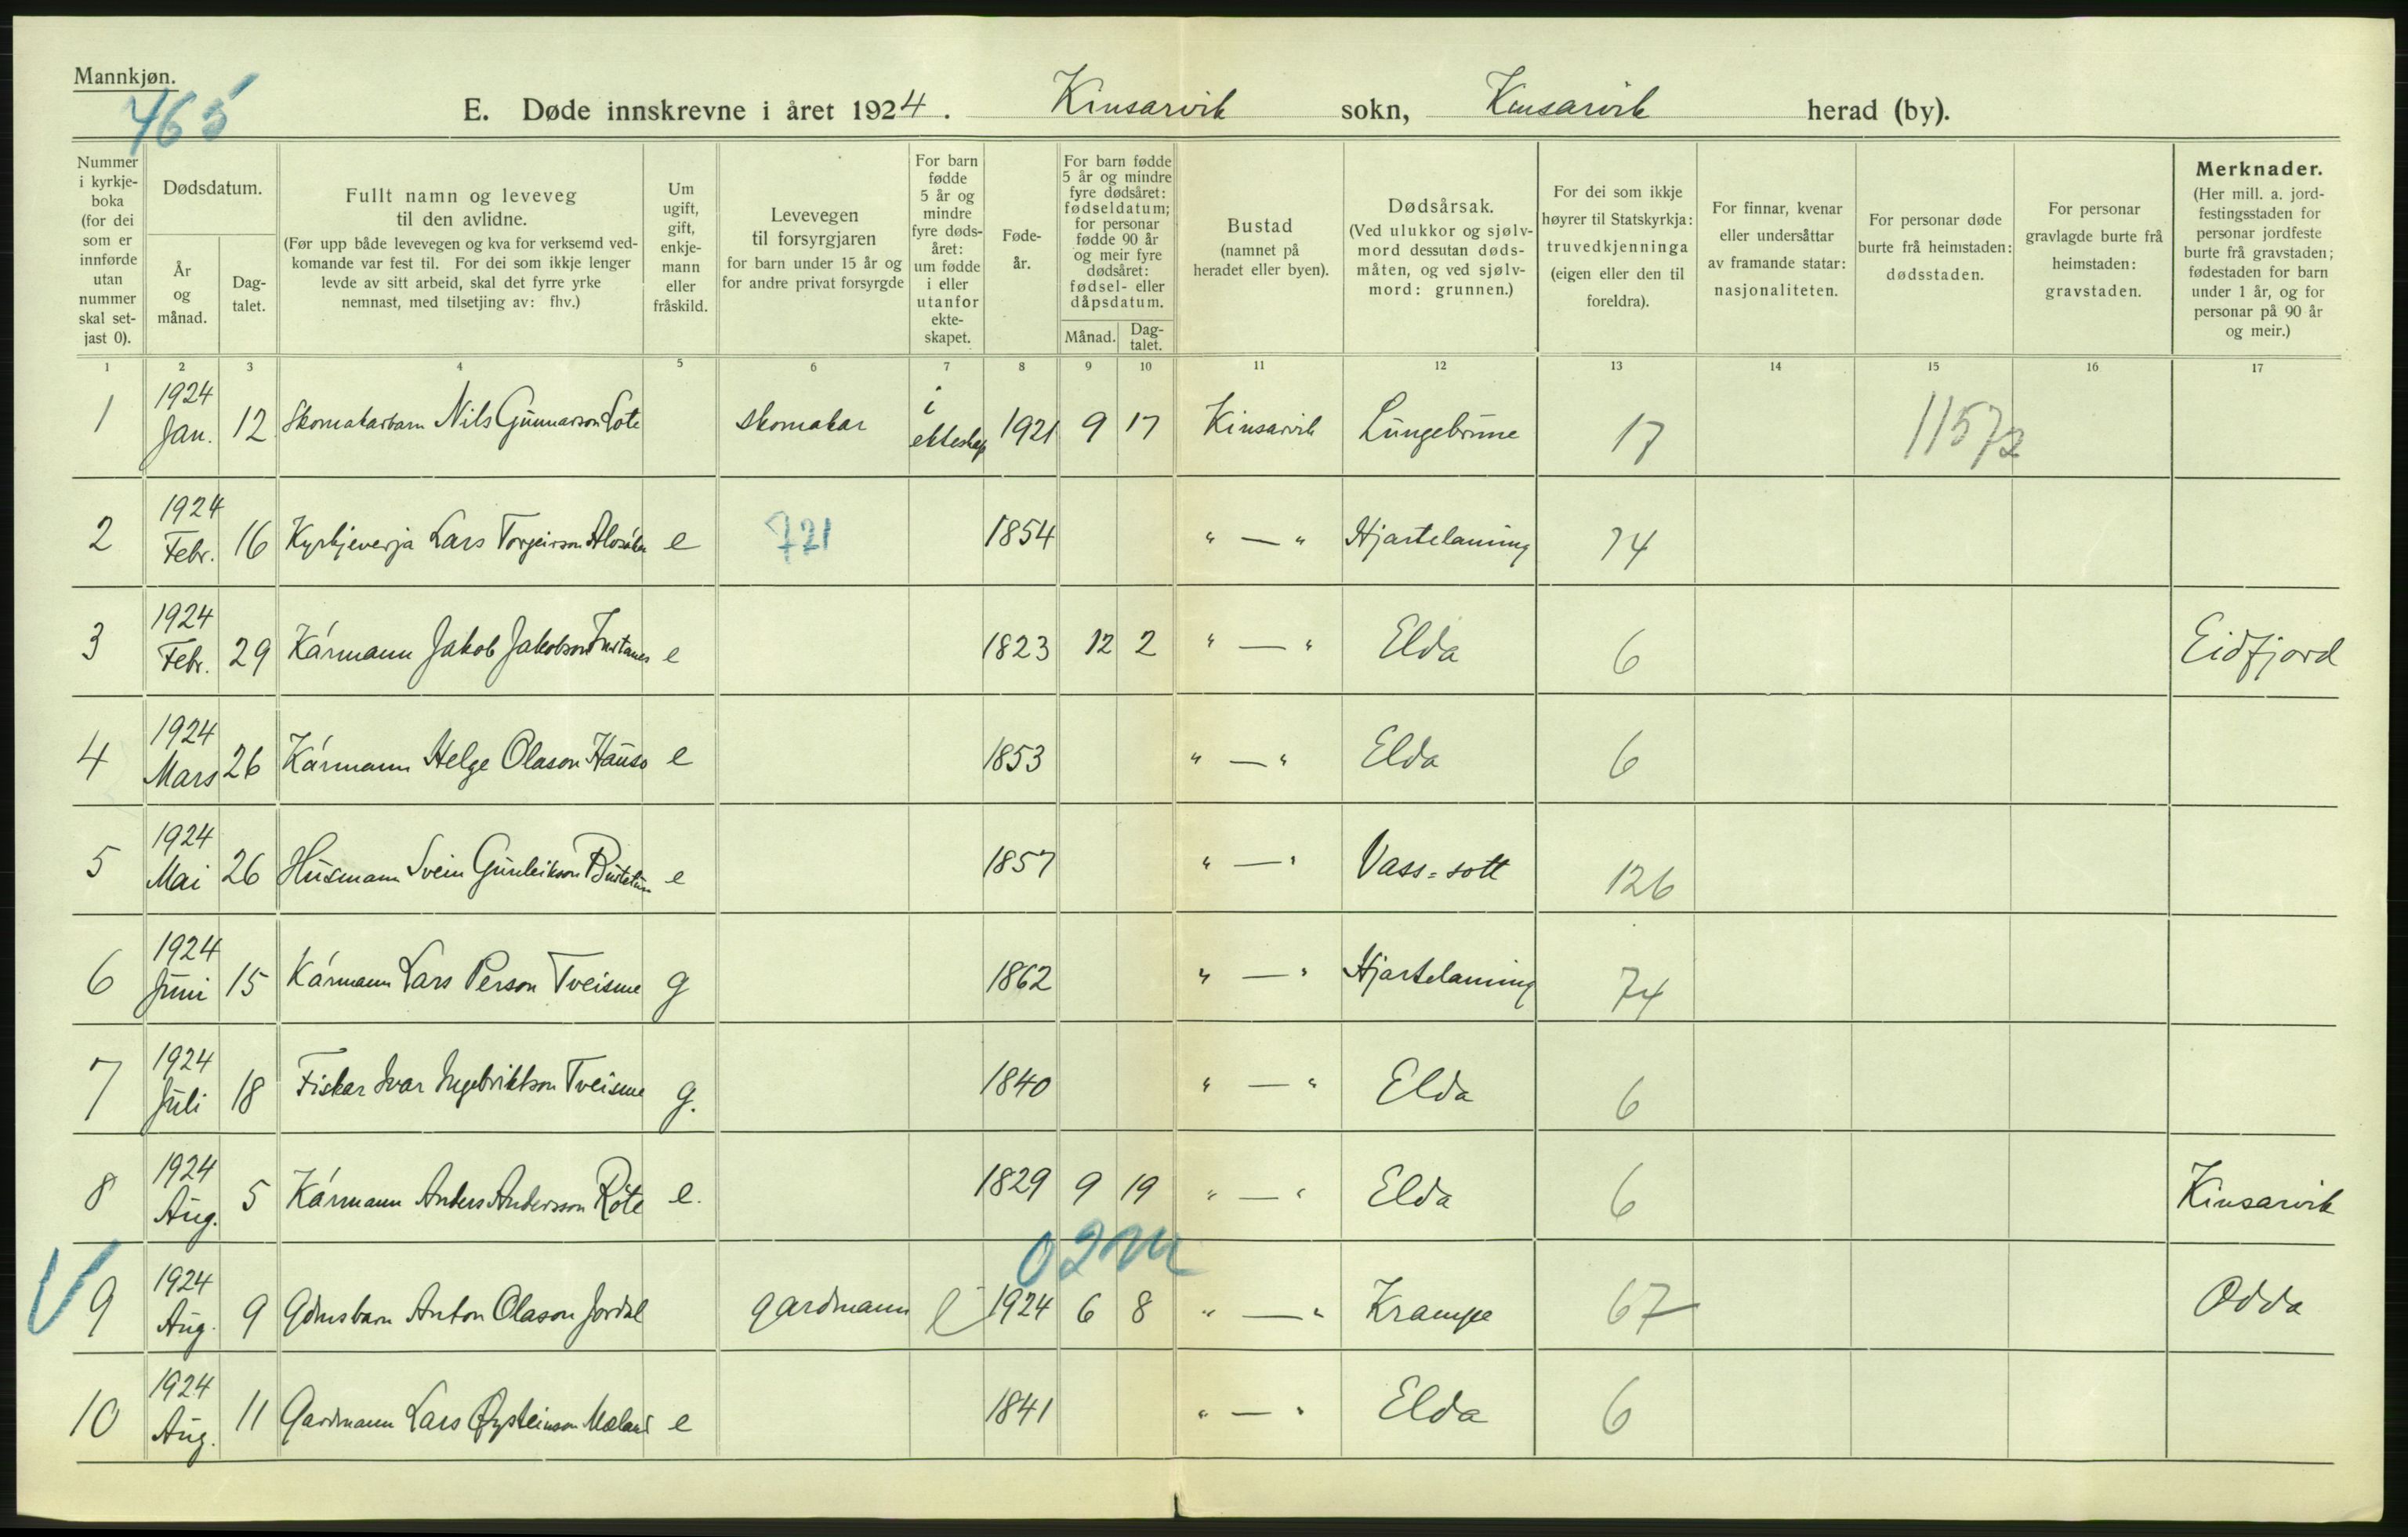 Mannkjøn.
465
E. Døde innskrevne i året 1924. Kinsarvik sokn, Kinsarvik herad (by).
Nummer i kyrkje-boka (for dei som er innførde utan nummer skal set-jast 0).
Dødsdatum.
År og månad.
Dag-talet.
Fullt namn og leveveg til den avlidne.
(Før upp både levevegen og kva for verksemd ved-komande var fest til. For dei som ikkje lenger levde av sitt arbeid, skal det fyrre yrke nemnast, med tilsetjing av: fhv.)
Um ugift, gift, enkje-mann eller fråskild.
Levevegen til forsyrgjaren for barn under 15 år og for andre privat forsyrgde
For barn fødde 5 år og mindre fyre døds-året: um fødde i eller utanfor ekte-skapet.
Føde-år.
For barn fødde 5 år og mindre fyre dødsåret: fødseldatum; for personar fødde 90 år og meir fyre dødsåret: fødsel- eller dåpsdatum.
Månad.
Dag-talet.
Bustad (namnet på heradet eller byen).
Dødsårsak. (Ved ulukkor og sjølv-mord dessutan døds-måten, og ved sjølv-mord: grunnen.)
For dei som ikkje høyrer til Statskyrkja: truvedkjenninga (eigen eller den til foreldra).
For finnar, kvenar eller undersåttar av framande statar: nasjonaliteten.
For personar døde burte frå heimstaden: dødsstaden.
For personar gravlagde burte frå heimstaden: gravstaden.
Merknader. (Her mill. a. jord-festingsstaden for personar jordfeste burte frå gravstaden; fødestaden for barn under 1 år, og for personar på 90 år og meir.)
1 2 3 4 5 6 7 8 9 10 11 12 13 14 15 16 17
1 1924 Jan. 12 Skomakarbarn Nils Gunnarson Lote skomakar i ekteskap 1921 9 17 Kinsarvik Lungebrune 17 11572
2 1924 Febr. 16 Kyrkjeverja Lars Torgeirson e 721 1854 " — " Hjartelaming 74
3 1924 Febr. 29 Kårmann Jakob Jakobson e 1823 12 2 " — " Elda 6 Eidfjord
4 1924 Mars 26 Kårmann Helge Olason Hauso e 1853 " — " Elda 6
5 1924 Mai 26 Husmann Svein Gunleikson e 1857 " — " Vass=sott 126
6 1924 Juni 15 Kårmann Lars Person Tveisme g 1862 " — " Hjartelaming 74
7 1924 Juli 18 Fiskar Ivar Ingebriktson Tveisme g. 1840 " — " Elda 6
8 1924 Aug. 5 Kårmann Anders Andersson Rote e. 1829 9 19 " — " Elda 6 Kinsarvik
0 2 m
9 1924 Aug. 9 Gdmsbarn Anton Olason Jordal gardmann 1924 6 8 " — " Krampe 67 Odda
10 1924 Aug. 11 Gardmann Lars Øysteinson Maland e 1841 " — " Elda 6